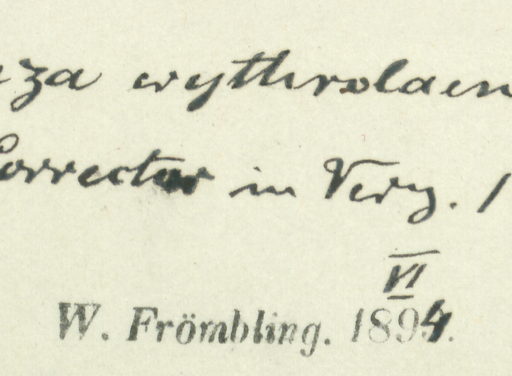 za erythrolaen
Corrector in Verz. 1
VI
W. Frömbling. 1894.